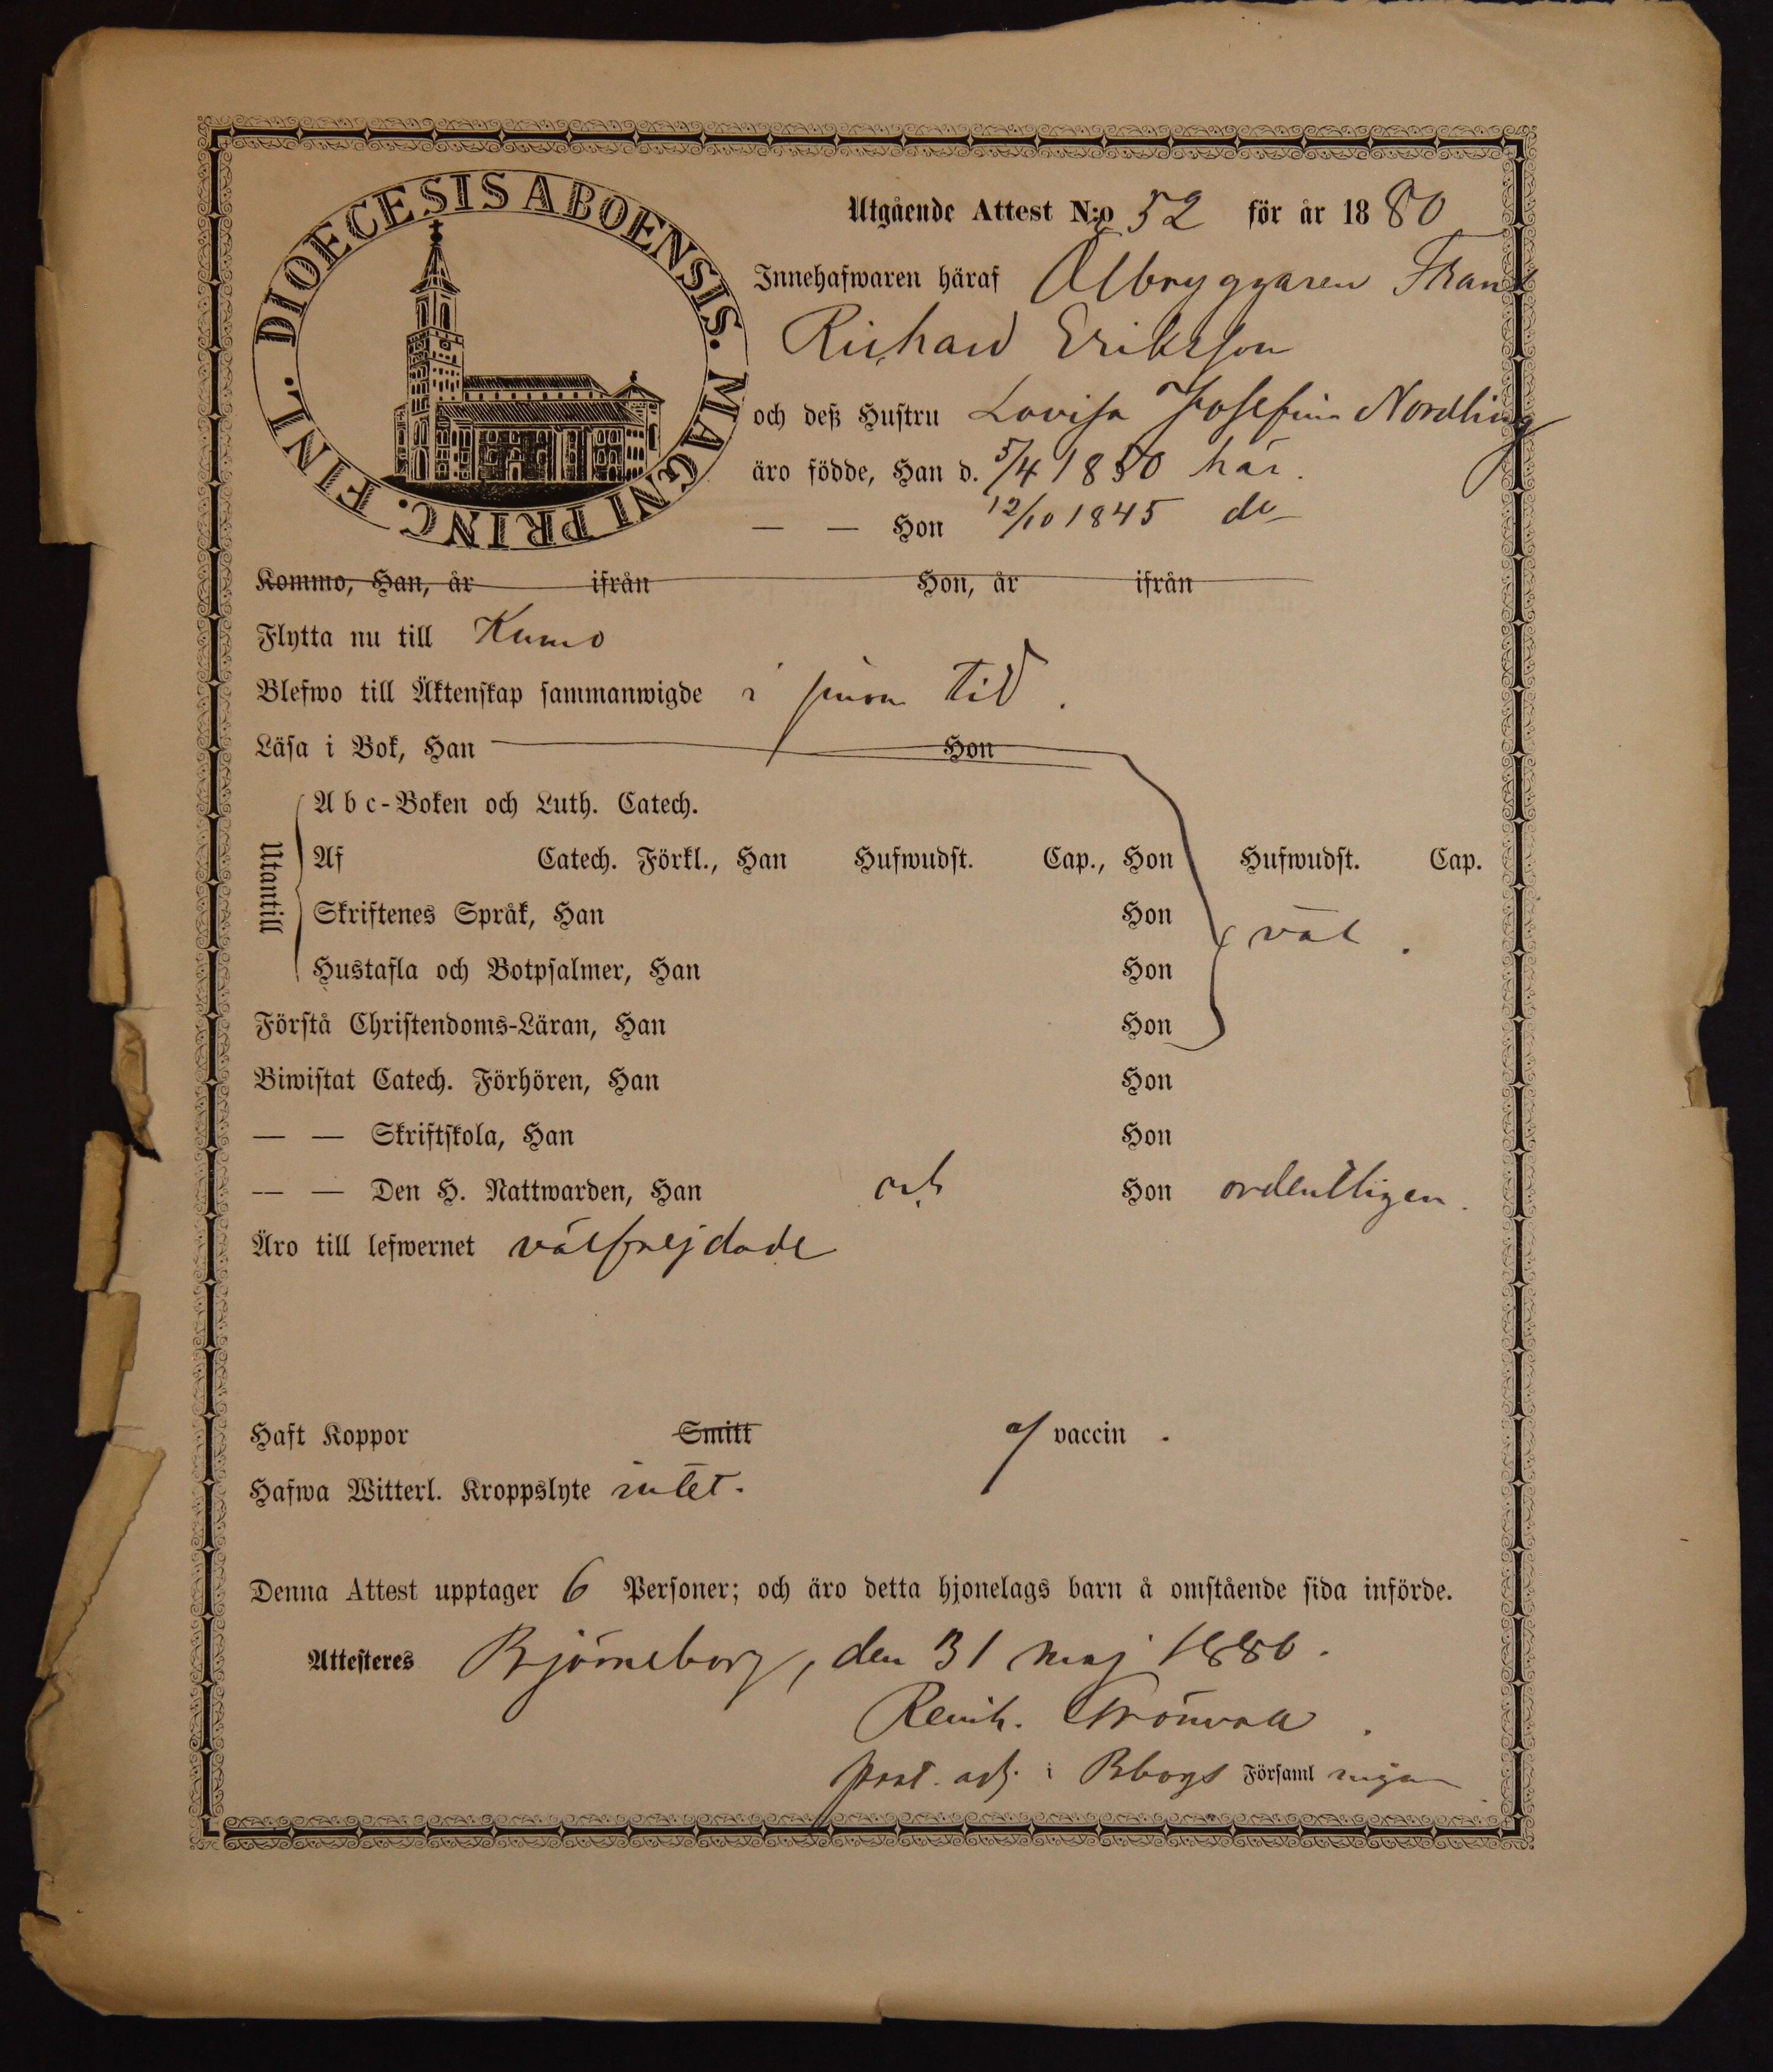 DIOECESIS ABOENSIS. MAGNI PRINC. FINL.
Utgående Attest N:o 52 för år 1880
Innehafwaren häraf Ölbryggaren Frans
Richard Eriksson
och deß Hustru Lovisa Josefina Nordling
äro födde, Han d. 5/4 1850 här.
— — Hon 12/10 1845 do
Kommo, Han, år ifrån Hon, år ifrån
Flytta nu till Kumo
Blefwo till Äktenskap sammanwigde i sinom tid.
Läsa i Bok, Han Hon
Utantill
Abc-Boken och Luth. Catech.
Af Catech. Förkl., Han Hufwudst. Cap., Hon Hufwudst. Cap.
Skriftenes Språk, Han Hon väl.
Hustafla och Botpsalmer, Han Hon
Förstå Christendoms-Läran, Han Hon
Biwistat Catech. Förhören, Han Hon
— — Skriftskola, Han Hon
— — Den H. Nattwarden, Han och Hon ordentligen.
Äro till lefwernet välfrejdade
Haft Koppor Smitt af vaccin.
Hafwa Witterl. Kroppslyte intet.
Denna Attest upptager 6 Personer; och äro detta hjonelags barn å omstående sida införde.
Attesteres Björneborg, den 31 maj 1880.
Reinh. Grönvall.
past. adj. i Bborgs Församlingen